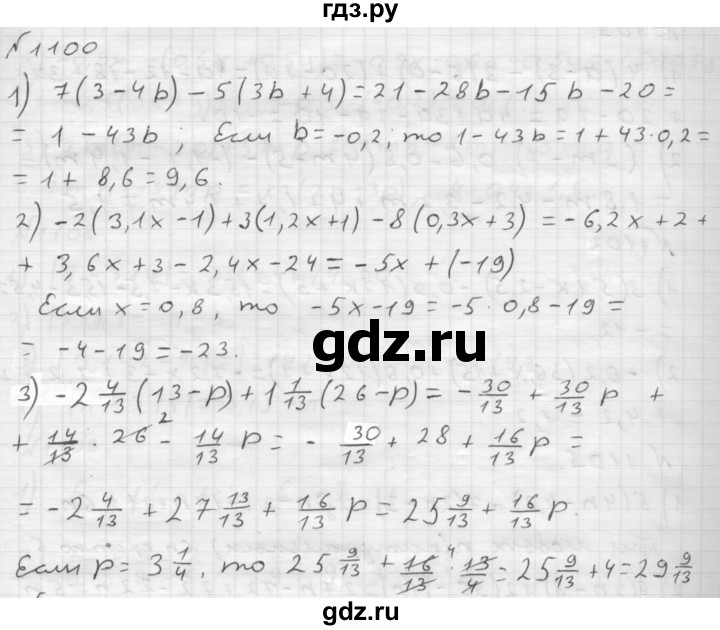 гдз.ру
№1100
1) 7(3-4b)-5(3b+4)=21-28b-15b-20=
= 1 - 43b; Если b=-0,2; то 1-43b=1+43·0,2=
= 1+ 8,6 = 9,6.
2) -2(3,1x-1)+3(1,2x+1)-8(0,3x+3) = -6,2x+2+
+ 3,6x+3-2,4x-24 = -5x+(-19)
Если x=0,8, то -5x-19=-5·0,8-19=
= -4-19=-23.
gdz.ru
3) -2 4/13 (13-p)+1 1/13 (26-p) = - 30/13 + 30/13 p +
+ 14/13 · 26 2 - 14/13 p = - 30/13 + 28 + 16/13 p =
= -2 4/13 + 27 13/13 + 16/13 p = 25 9/13 + 16/13 p.
Если p = 3 1/4, то 25 9/13 + 16/13 4 · 13/4 = 25 9/13 + 4 = 29 9/13
gdz.ru